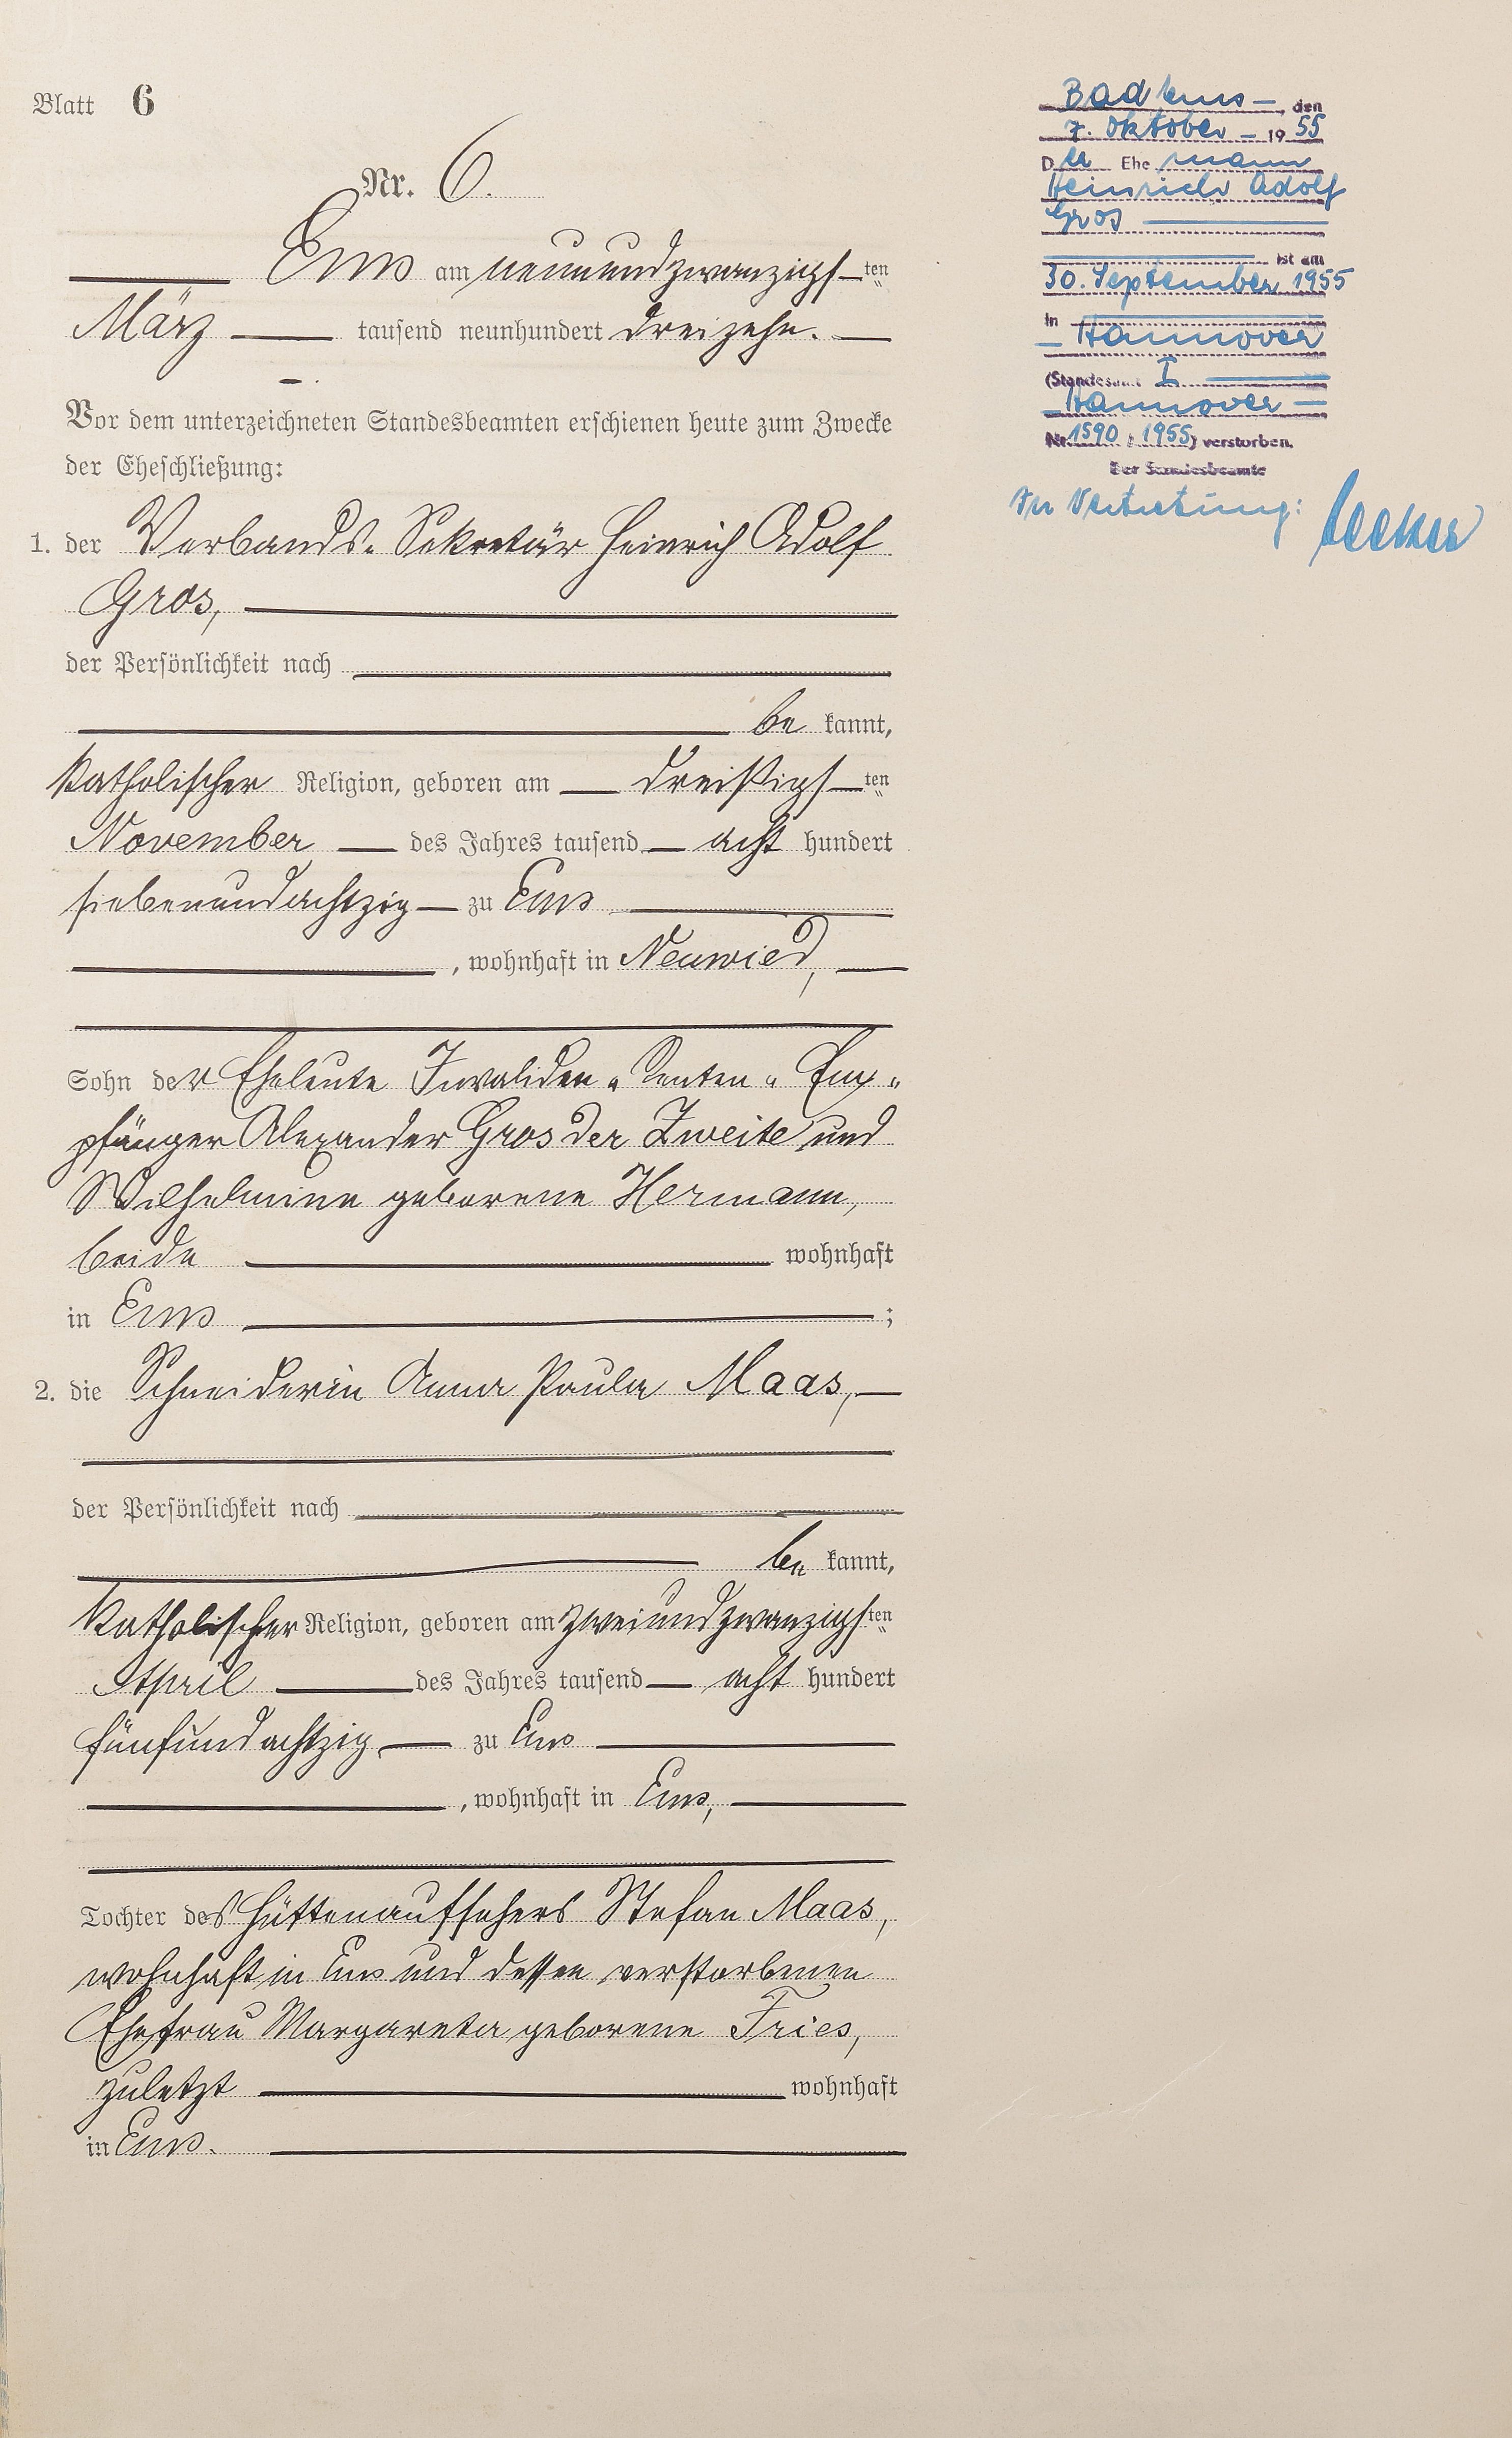 Blatt 6
Nr. 6.
Ems am neunundzwanzigsten
März tausend neunhundert dreizehn.
Vor dem unterzeichneten Standesbeamten erschienen heute zum Zwecke
der Eheschließung:
1. der Verbands-Sekretär Heinrich Adolf
Gros,
der Persönlichkeit nach
be kannt,
katholischer Religion, geboren am dreißigsten
November des Jahres tausend acht hundert
siebenundachtzig zu Ems
, wohnhaft in Neuwied,
Sohn der Eheleute Invaliden-Renten-Em-
pfänger Alexander Gros der Zweite und
Wilhelmine geborene Hermann,
beide wohnhaft
in Ems ;
2. die Schneiderin Anna Paula Maas,
der Persönlichkeit nach
be kannt,
katholischer Religion, geboren am zweiundzwanzigsten
April des Jahres tausend acht hundert
fünfundachtzig zu Ems
, wohnhaft in Ems,
Tochter des Hüttenaufsehers Stefan Maas,
wohnhaft in Ems und dessen verstorbenen
Ehefrau Margareta geborene Fries,
zuletzt wohnhaft
in Ems.
Bad Ems, den
7. Oktober 1955
Der Ehemann
Heinrich Adolf
Gros
ist am
30. September 1955
in
Hannover
(Standesamt I
Hannover
Nr. 1590 / 1955) verstorben.
Der Standesbeamte
In Vertretung: